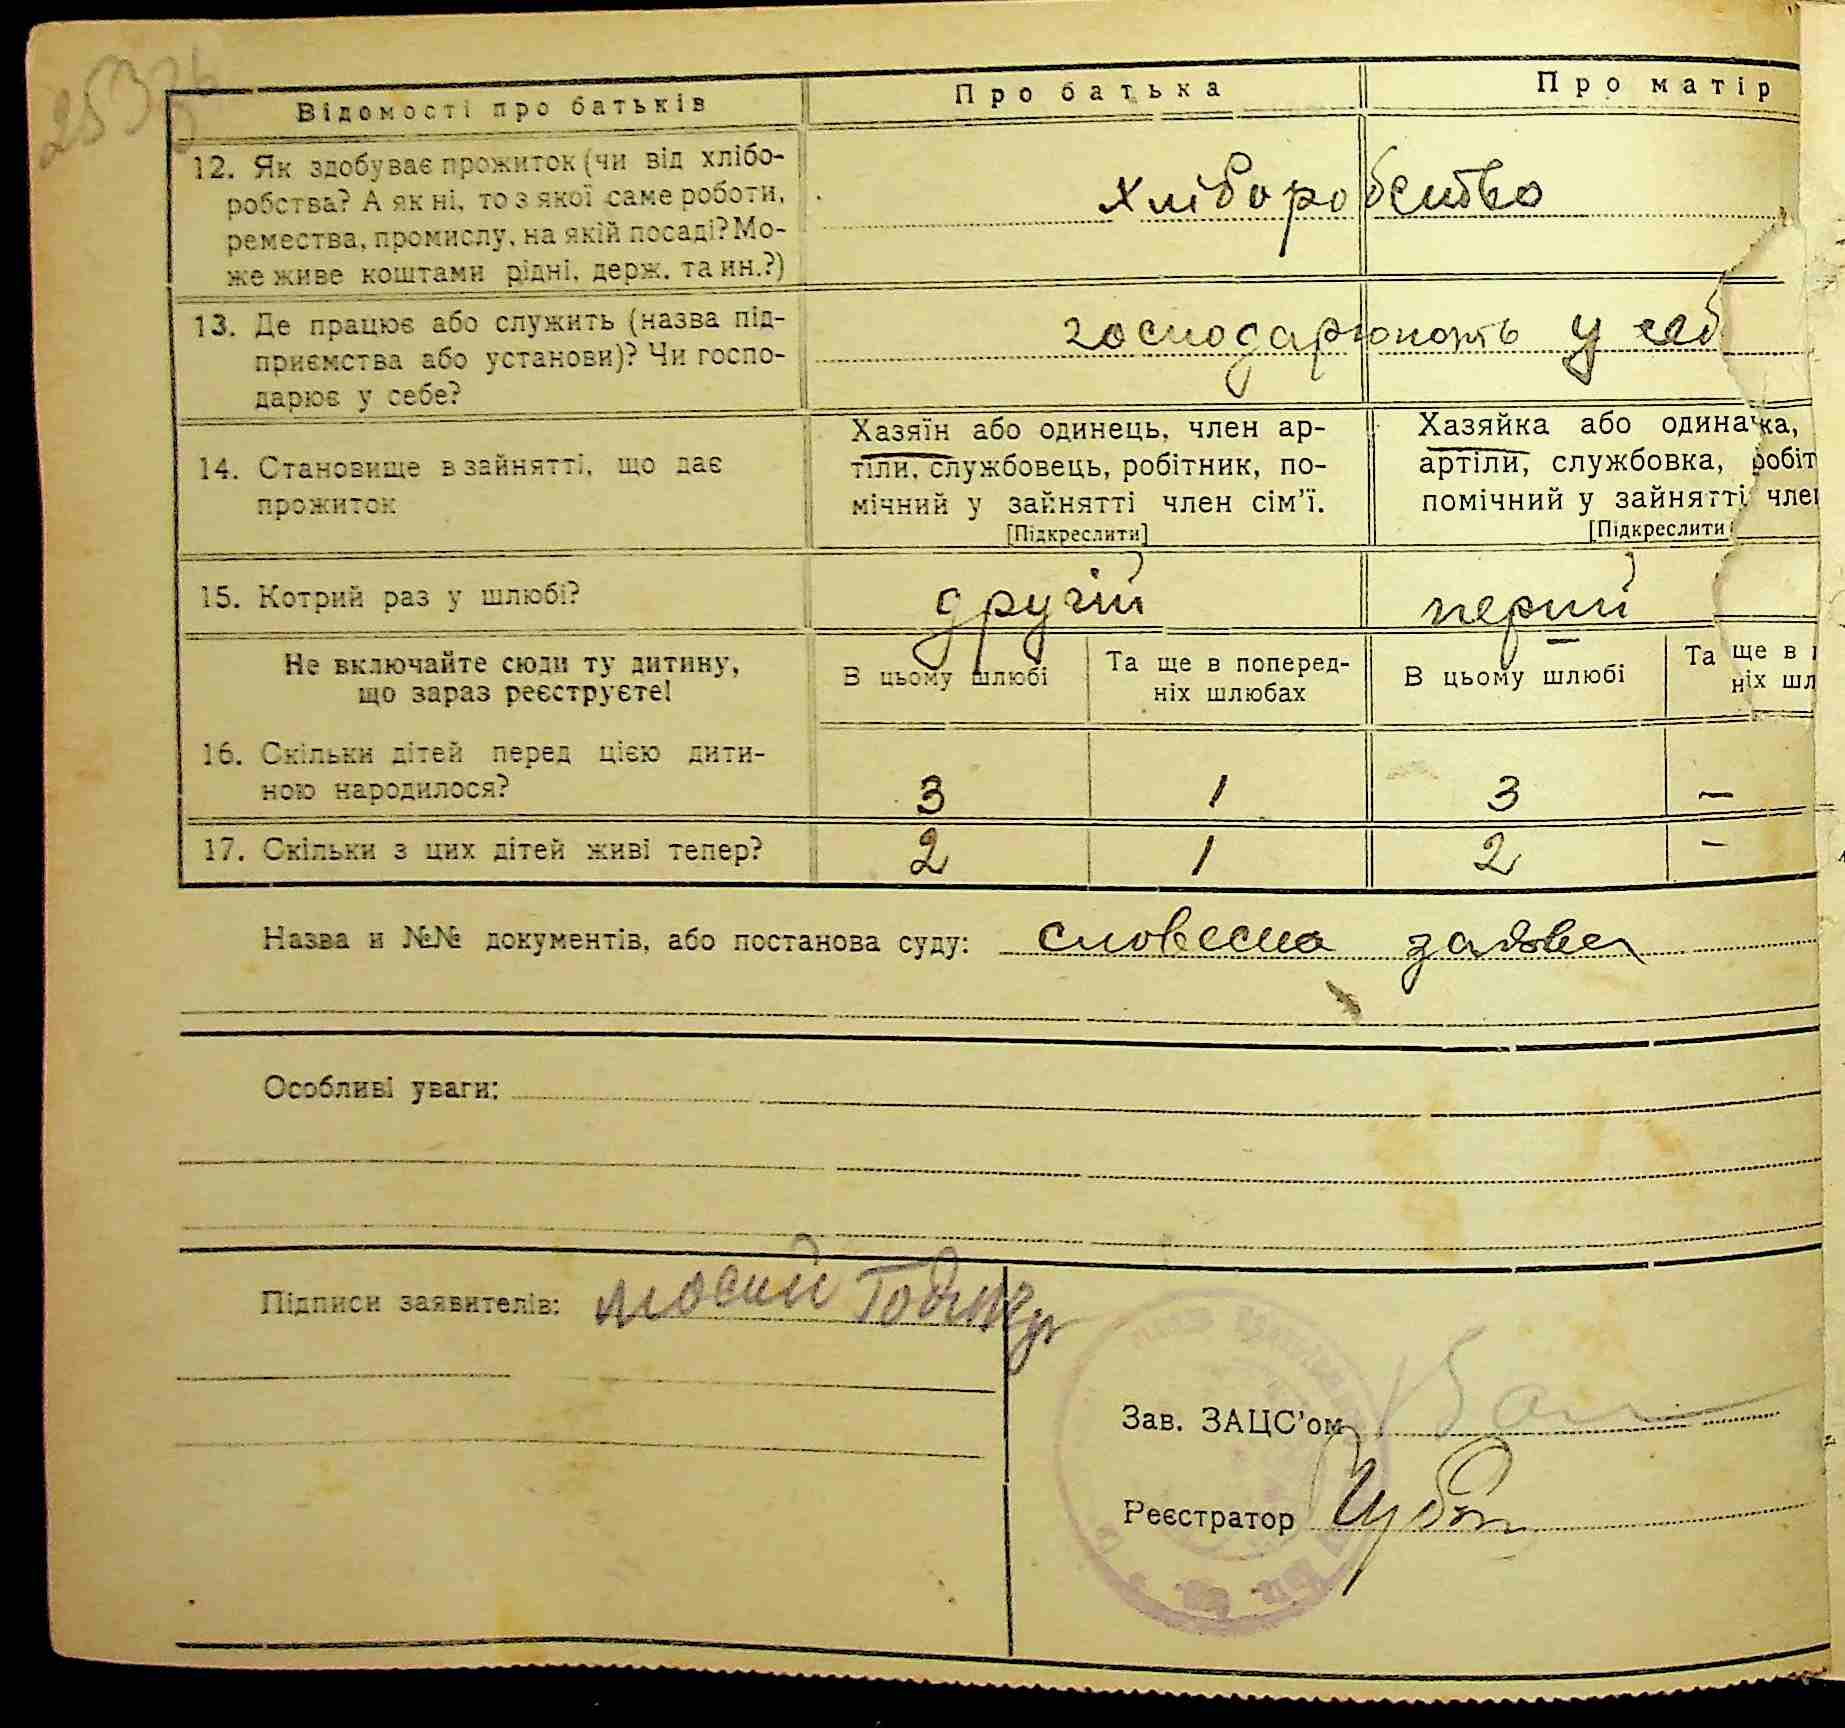 Відомості про батьків
Про батька
Про матір
12. Як здобуває прожиток (чи від хлібо-
робства? А як ні, то з якої саме роботи,
ремества, промислу, на якій посаді? Мо-
же живе коштами рідні, держ. та ин.?)
хліборобство
13. Де працює або служить (назва під-
приємства або установи)? Чи госпо-
дарює у себе?
господарюють у себ
14. Становище в зайнятті, що дає
прожиток
Хазяїн або одинець, член ар-
тіли, службовець, робітник, по-
мічний у зайнятті член сім'ї.
[Підкреслити]
Хазяйка або одиначка,
артіли, службовка, робіт
помічний у зайнятті член
[Підкреслити]
15. Котрий раз у шлюбі?
другій
перший
Не включайте сюди ту дитину,
що зараз реєструєте!
В цьому шлюбі
Та ще в поперед-
ніх шлюбах
В цьому шлюбі
Та ще в
ніх шл
16. Скільки дітей перед цією дити-
ною народилося?
3 1 3 —
17. Скільки з цих дітей живі тепер?
2 1 2 -
Назва и №№ документів, або постанова суду: словесна заява
Особливі уваги:
Підписи заявителів: мосий
Зав. ЗАЦС'ом
Реєстратор